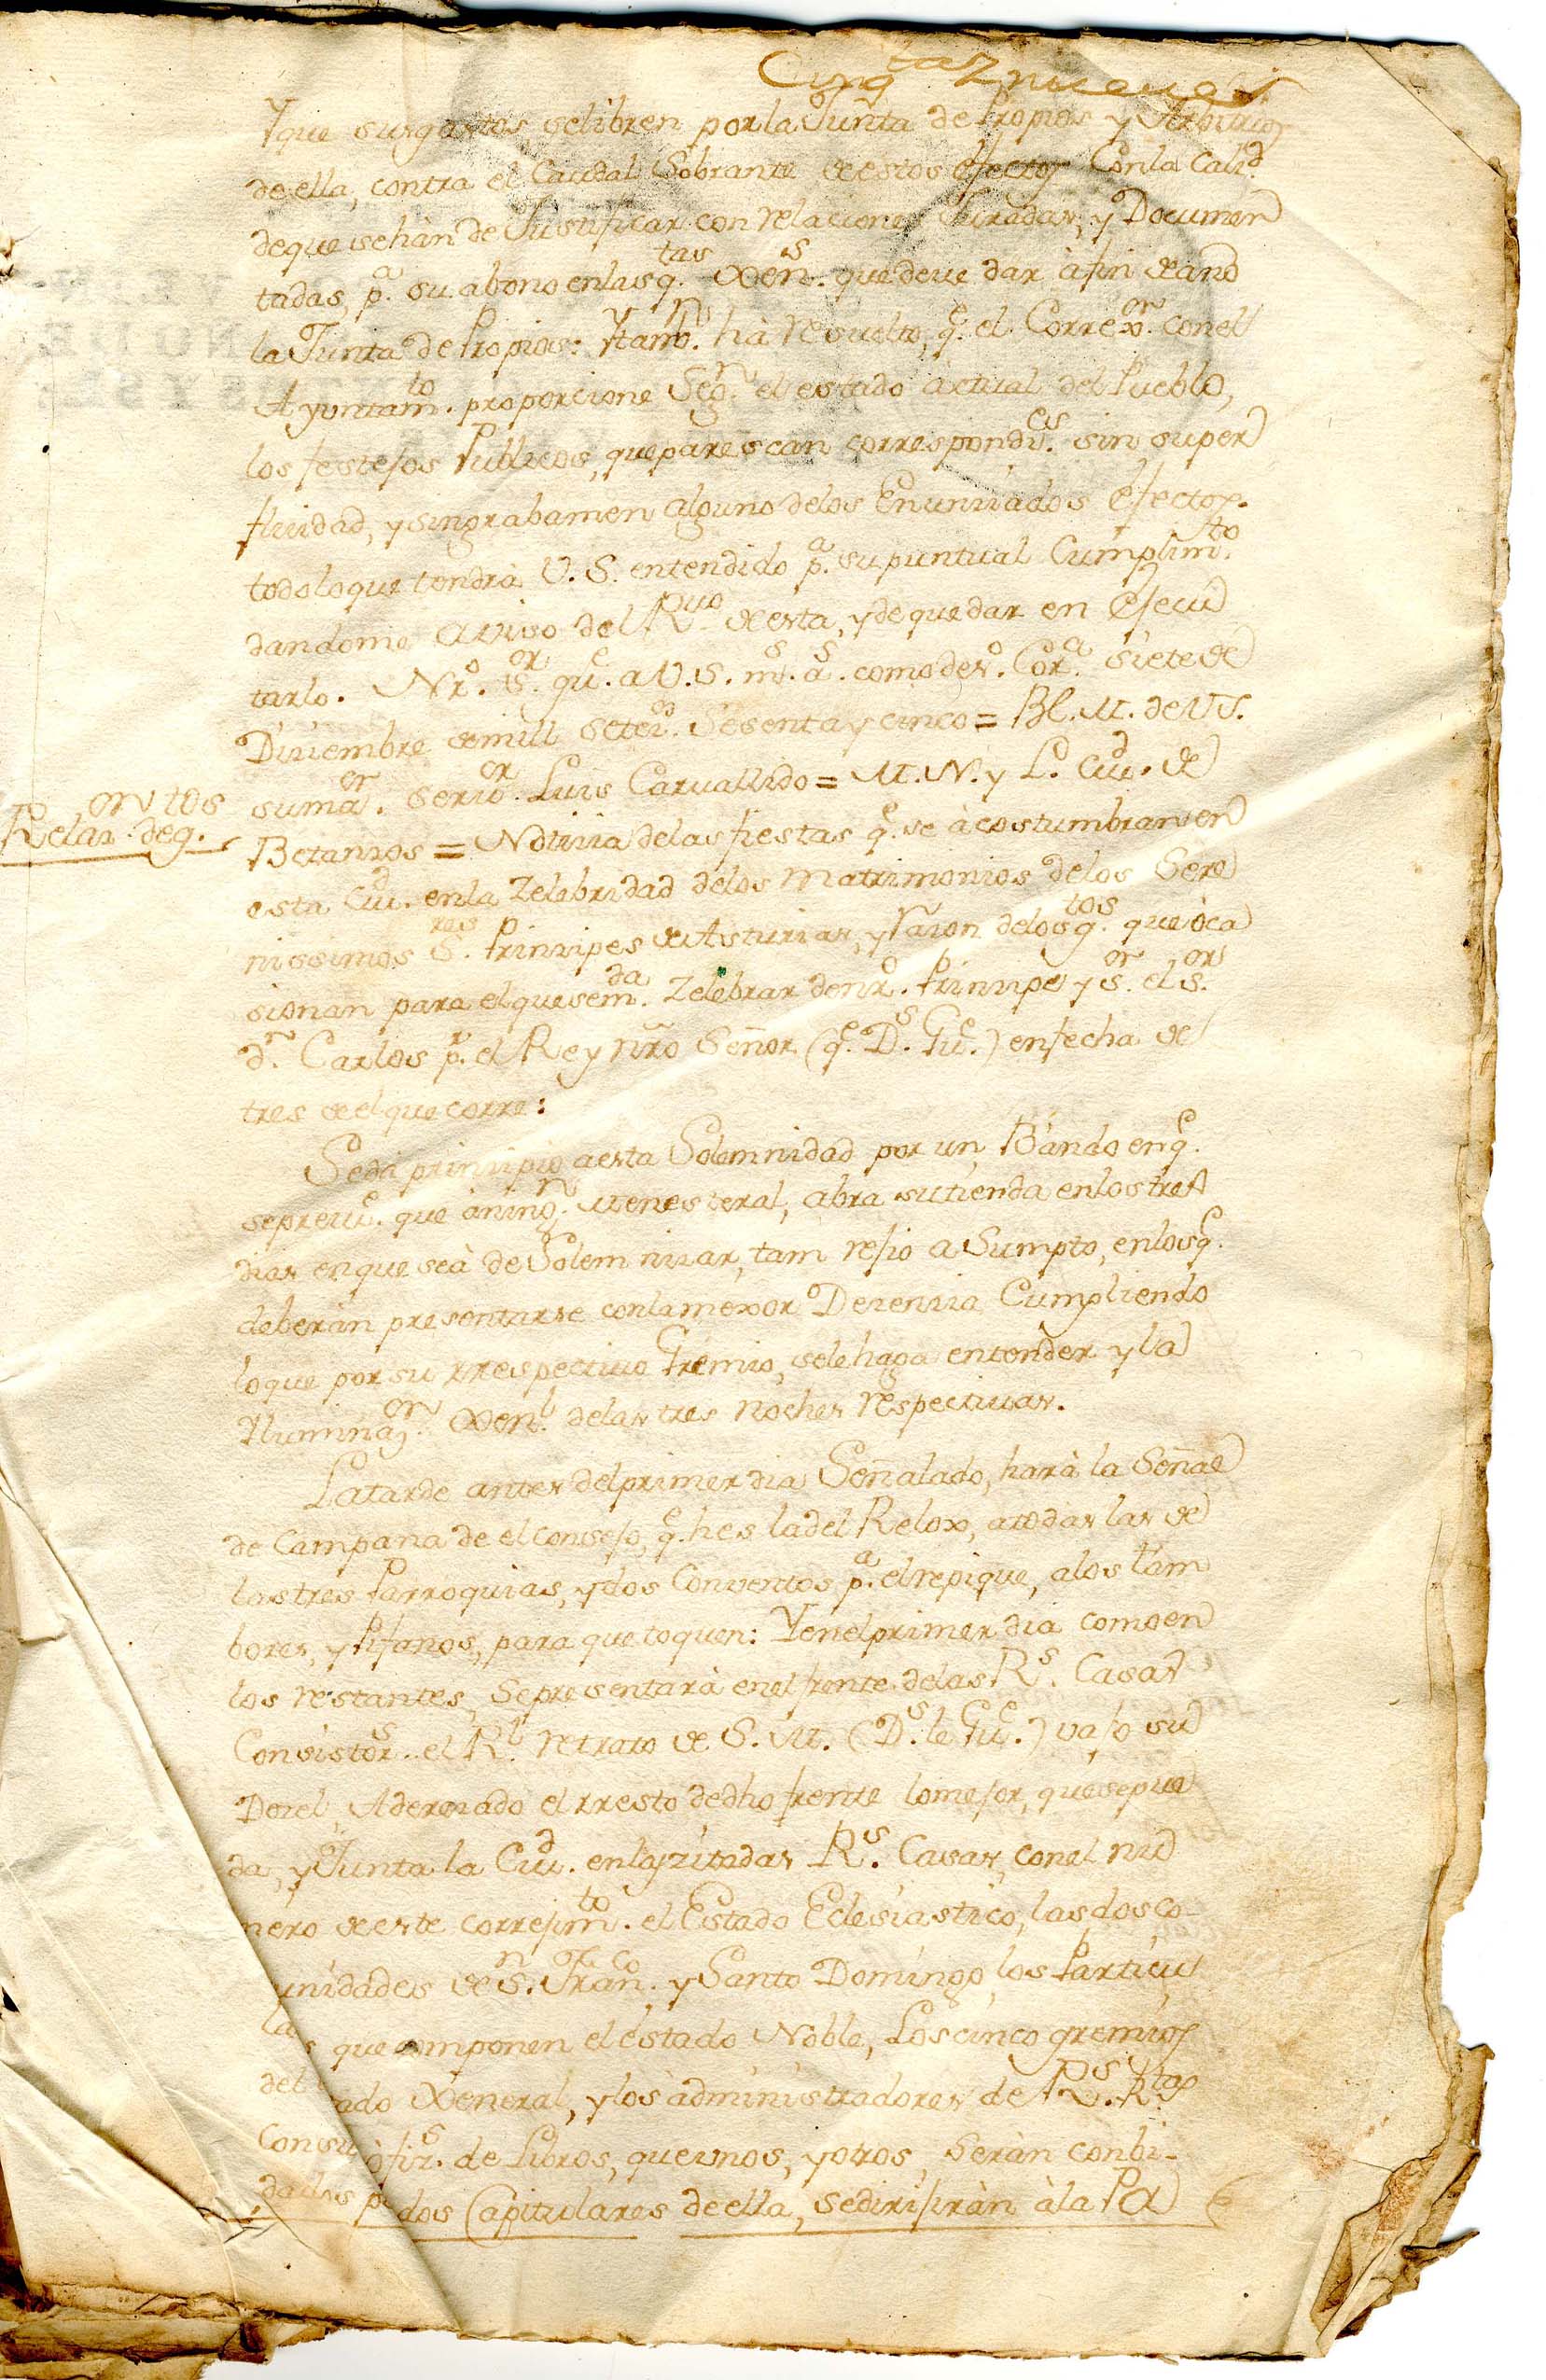 Cinq.ta y nueve
Y que sus gastos se libren por la Junta de Propios y Arbitrios
de ella, contra el Caudal Sobrante de estos efectos Con la Calid.d
de que se hàn de Justificar con relaciones Juradas, y Documen
tadas, p.a su abono en las q.tas Xen.s que deve dar à fin de año
la Junta de Propios: Y tamb.n hà resuelto, q.e el Correx.or con el
Ayuntam.to proporcione Seg.n el estado actual del Pueblo,
los festejos Publicos, que parescan correspondi.es sin super
fluidad, y sin grabamen alguno delos Enunciados efectos.
todo lo que tendrà V. S. entendido p.a su puntual Cumplim.to
dandome aviso del R.vo de esta, y de quedar en Ejecu
tarlo. Nr.o S.or gu.e a V. S. m.s a.s como des.o Cor.a Siete de
Diciembre de mill Setec.os Sesenta y cinco = Bl. M. de VS.
su ma.or servi.or Luis Carvallido = M. N. y L. Ciu.d de
Relaz.on de g.tos
Betanzos = Noticia delas fiestas q.e se àcostumbran en
esta Ciu.d en la Zelebridad delos Matrimonios delos Sere
nissimos S.res Principes de Asturias, y Raçon delos g.tos que òca
sionan para el que se m.da Zelebrar de nr.o Principe y s.or el s.or
d.n Carlos p.r el Rey nr̃o Señor (q.e D.s Gu.e) en fecha de
tres de el que corre:
Se dà principio a esta Solemnidad por un Bando en q.e
se previe.e que àning.n menesteral, abra su tienda en los tres
dias en que se à de Solemnizar, tam rejio a Sumpto, en los q.e
deberàn presentarse con la mexor Decencia Cumpliendo
lo que por su rrespectivo Gremio, se le haga entender y la
Iluminaz.on Xen.l de las tres noches respectivas.
La tarde antes del primer dia Señalado, harà la Señal
de Campana de el consejo, q.e hes la del Relox, a todas las de
las tres Parroquias, y dos Conventos p.a el repique, a los tam
bores, y Pifanos, para que toquen: Y en el primer dia como en
los restantes, Se presentarà en el frente de las R.s Casas
Consistor.s el R.l retrato de S. M. (D.s le Gu.e) vajo su
Docel, Aderezado el rresto de dho frente lo mejor, que se pue
da, y Junta la Ciu.d en las zitadas R.s Casas, con el nu
mero de este correjim.to el Estado Eclesiastico, las dos co-
unidades de S.n Fran.co y Santo Domingo, los Particu
la s que componen el èstado Noble, Los cinco gremios
del ado Xeneral, y los àdministradores de R.s R.tas
Con su òfiz.s de Libros, que unos, y otros Seràn conbi-
dados p.r dos Capitulares de ella, se dirijiràn à la Pa